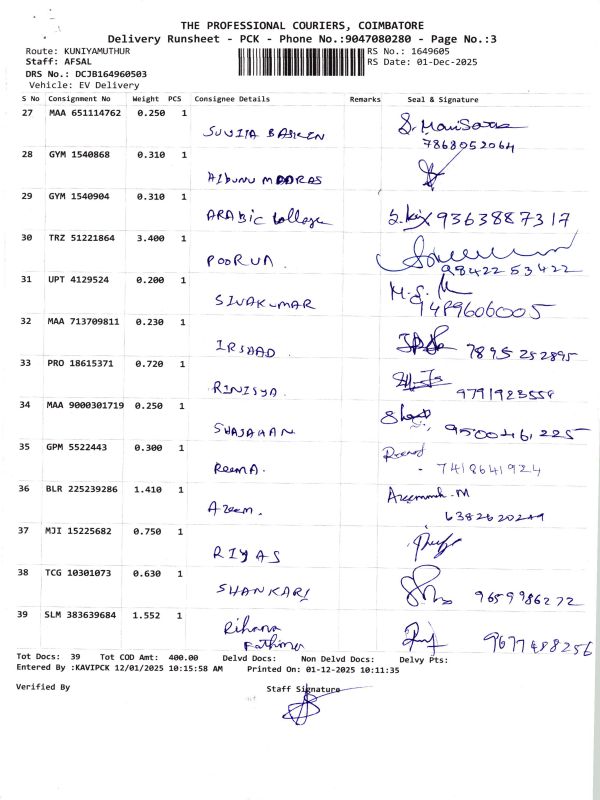 THE PROFESSIONAL COURIERS, COIMBATORE
Delivery Runsheet - PCK - Phone No.:9047080280 - Page No.:3
Route: KUNIYAMUTHUR RS No.: 1649605
Staff: AFSAL RS Date: 01-Dec-2025
DRS No.: DCJB164960503
Vehicle: EV Delivery
S No Consignment No Weight PCS Consignee Details Remarks Seal & Signature
27 MAA 651114762 0.250 1
7868052064
28 GYM 1540868 0.310 1
29 GYM 1540904 0.310 1
ARABIC College 9363887317
30 TRZ 51221864 3.400 1
POORVA. 98422 53422
31 UPT 4129524 0.200 1
SIVAKUMAR 9489606005
32 MAA 713709811 0.230 1
IRSHAD. 7895 252895
33 PRO 18615371 0.720 1
RINISYA. 9791923558
34 MAA 9000301719 0.250 1
SHAJAHAN 9500461225
35 GPM 5522443 0.300 1
ReemA. - 7418641924
36 BLR 225239286 1.410 1
Azeem.
37 MJI 15225682 0.750 1
RIYAS
38 TCG 10301073 0.630 1
SHANKARI 9659986272
39 SLM 383639684 1.552 1
Rihana
Fathima 9677488256
Tot Docs: 39 Tot COD Amt: 400.00 Delvd Docs: Non Delvd Docs: Delvy Pts:
Entered By :KAVIPCK 12/01/2025 10:15:58 AM Printed On: 01-12-2025 10:11:35
Verified By Staff Signature